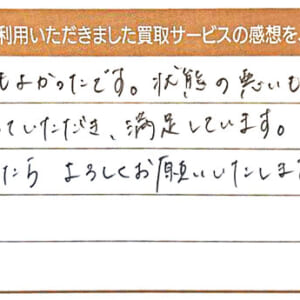 利用いただきました買取サービスの感想を
もよかったです。状態の悪いも
っていただき、満足しています。
たら よろしくお願いいたしま